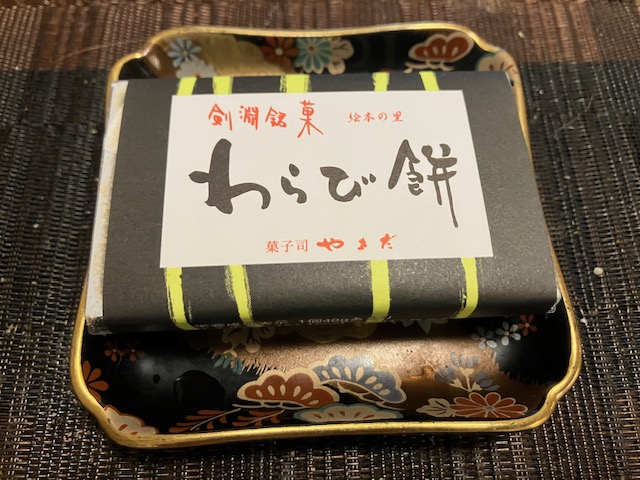 剣淵銘菓 絵本の里
わらび餅
菓子司 やまだ